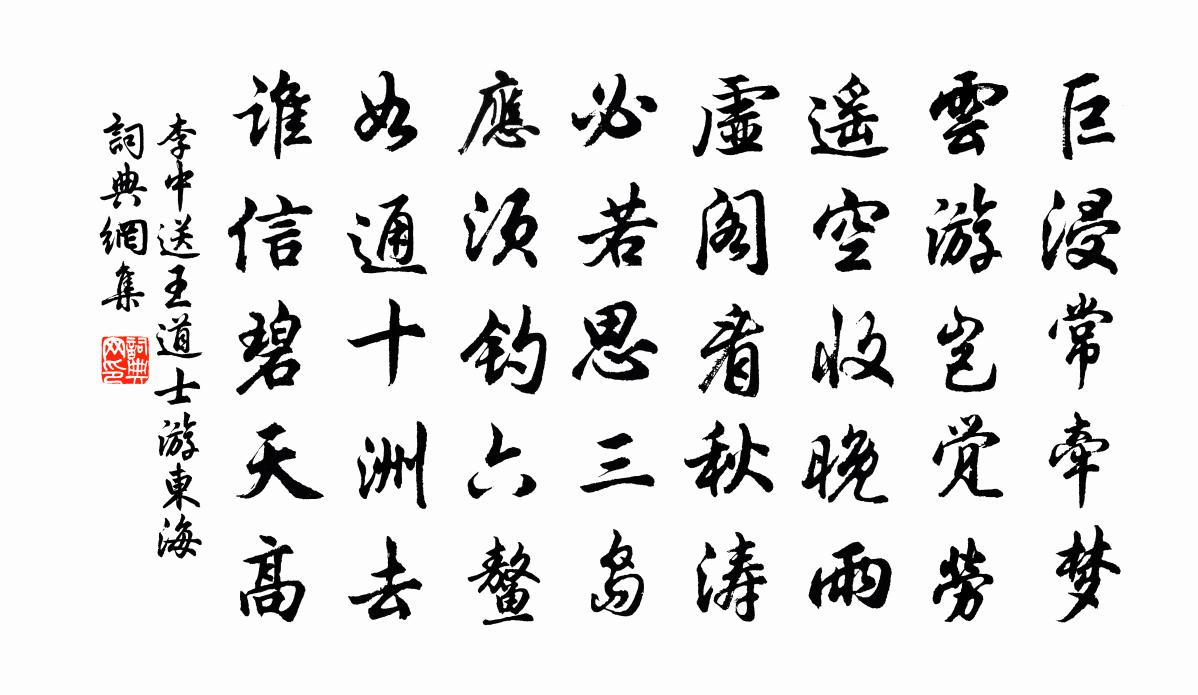 巨浸常牵梦
雲游岂觉勞
遥空收晚雨
虚阁看秋涛
必若思三岛
應须钓六鳌
如通十洲去
谁信碧天高
李中送王道士游東海
詞典網集
詞典网印